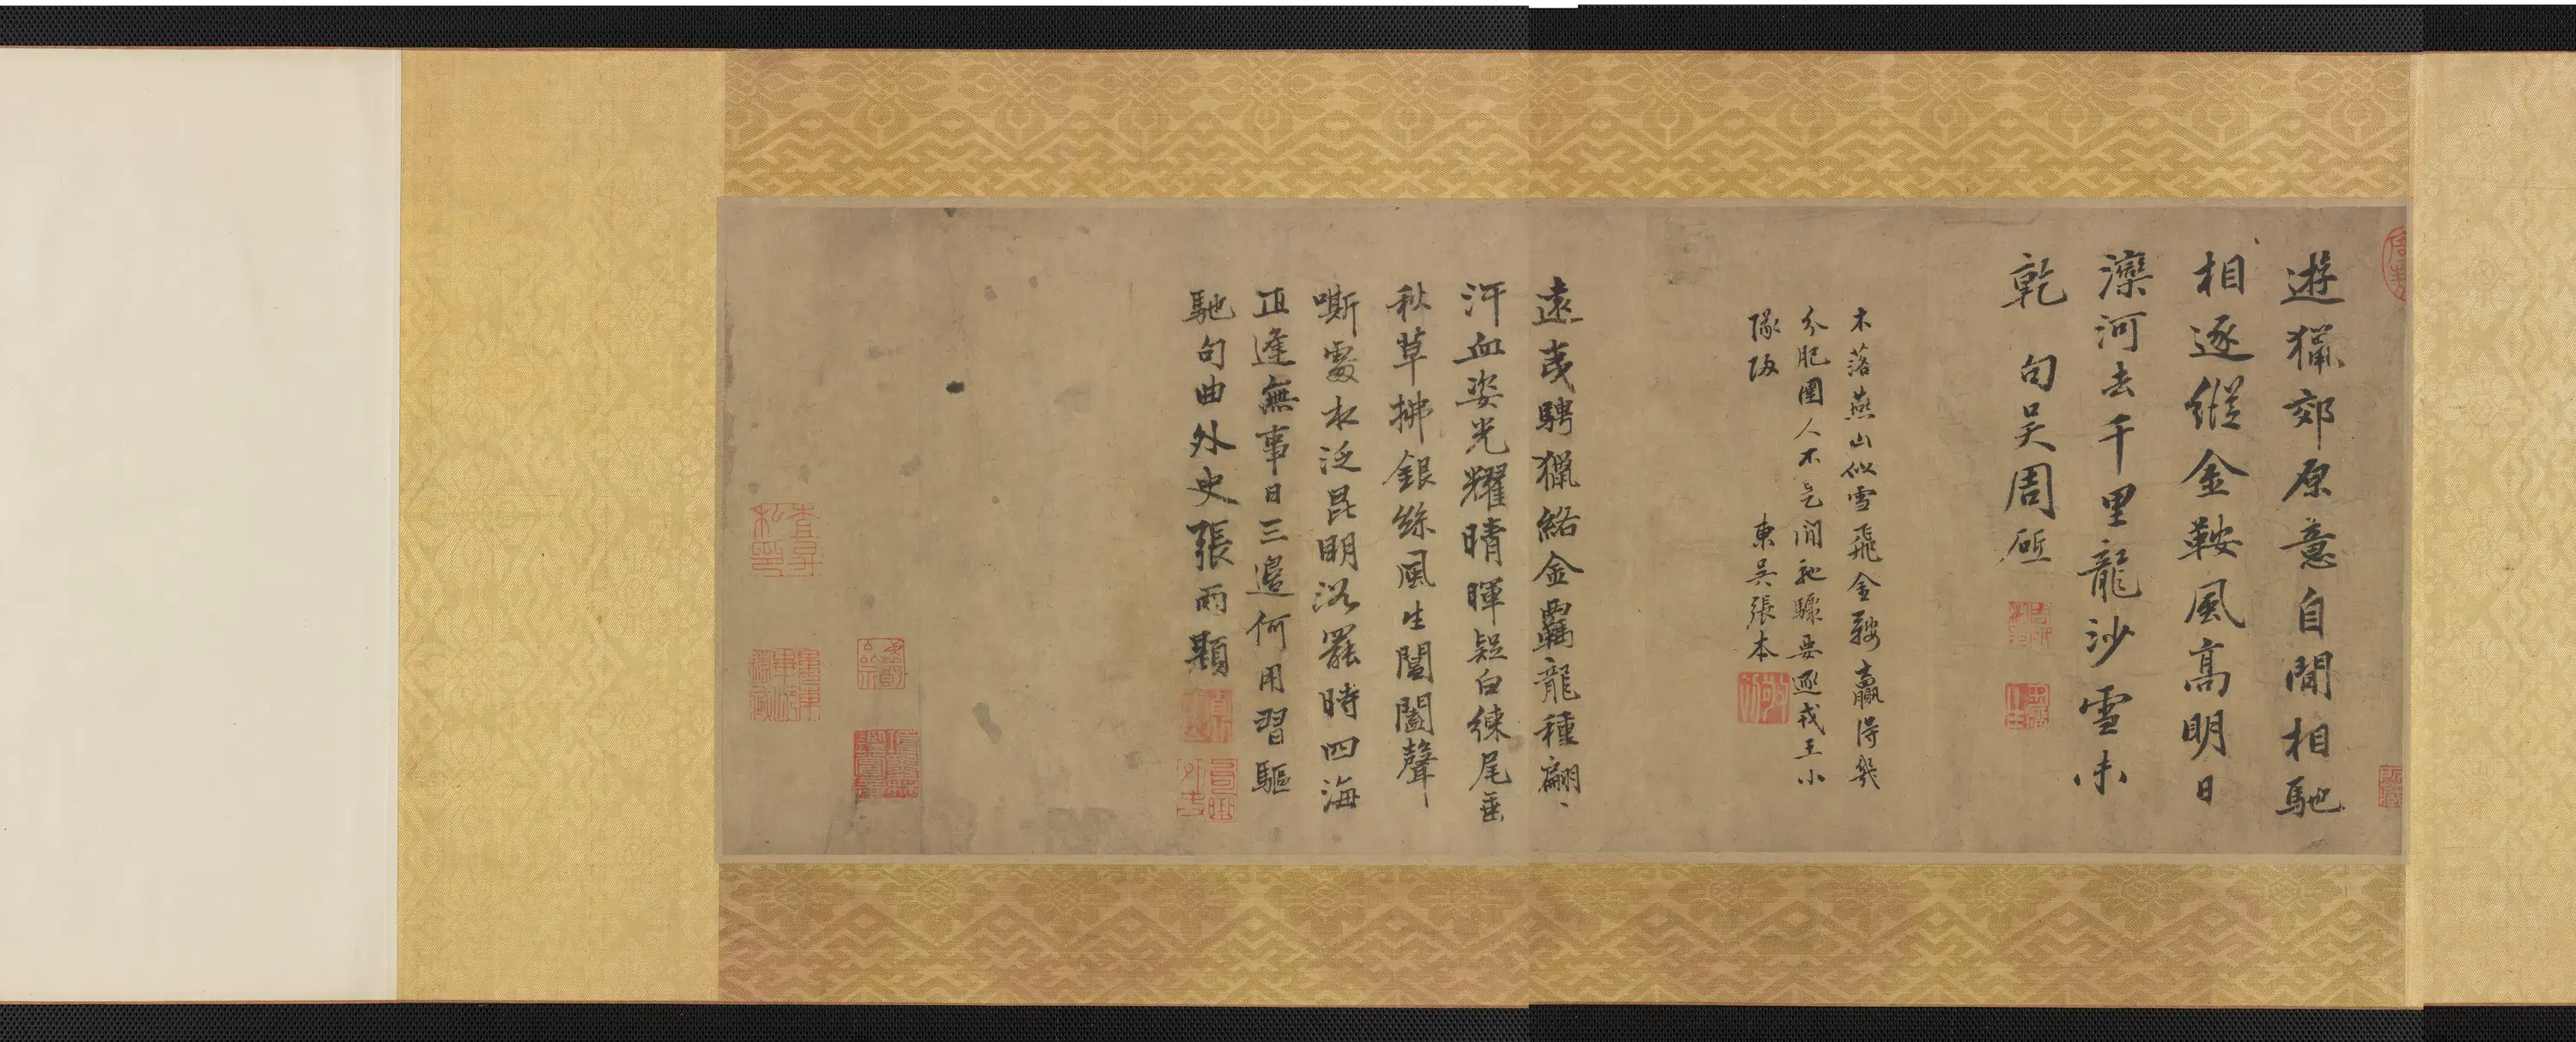 遊獵郊原意自閒相馳
相逐縱金鞍風高明日
灤河去千里龍沙雪未
乾 句吴周砥
木落燕山似雪飛金鞍贏得幾
分肥圉人不是閒馳驟要逐戎王小
隊 東吳張本
遠夷騁獵絡金羈龍種翩〻
汗血姿光耀晴暉疑白練尾垂
秋草拂銀絲風生閶闔聲
嘶處水泛昆明浴罷時四海
正逢無事日三邊何用習驅
馳句曲外史張雨題